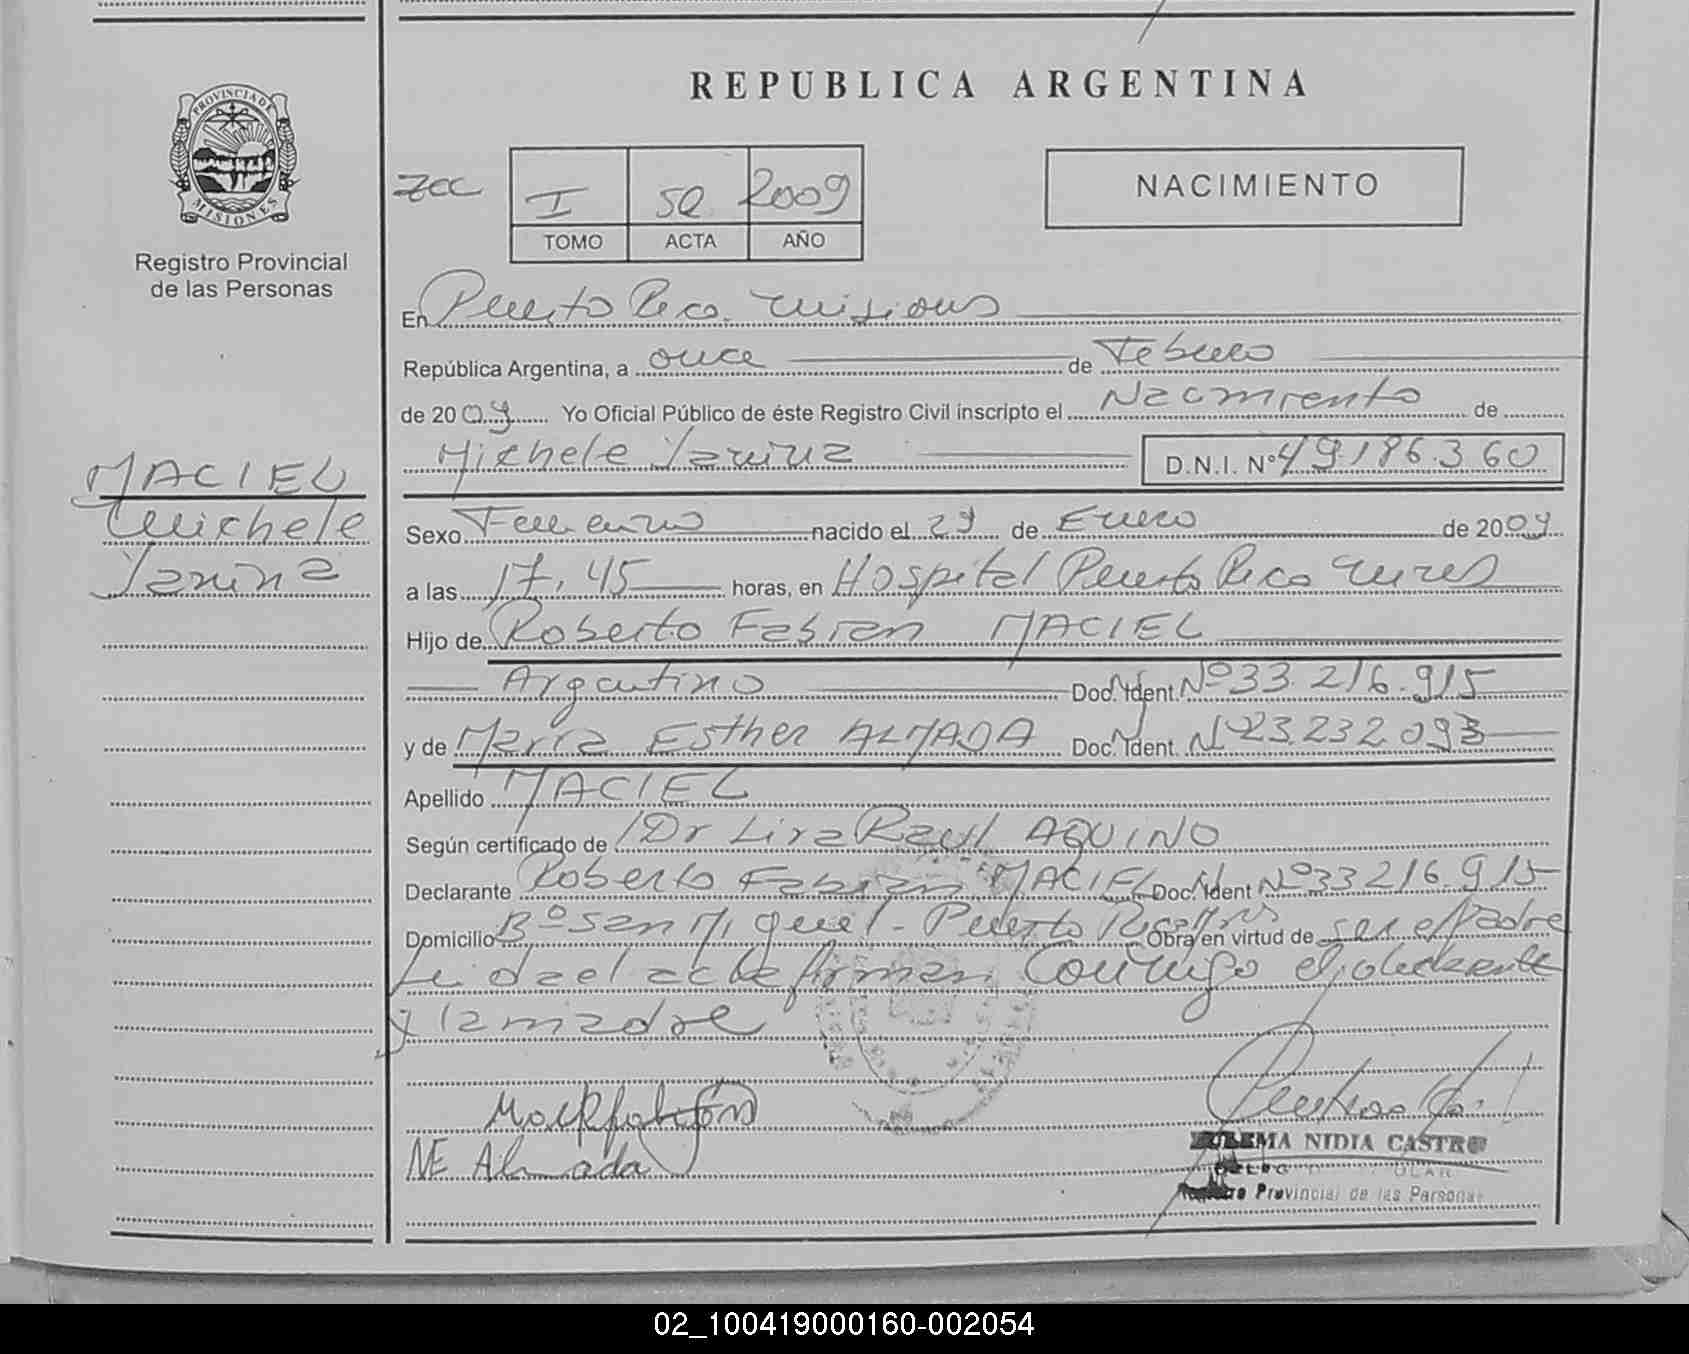 REPUBLICA ARGENTINA
PROVINCIA DE
MISIONES
Registro Provincial
de las Personas
I 2009
TOMO ACTA AÑO
NACIMIENTO
En Puerto Rico. Misiones
República Argentina, a once de Febrero
de 2009 Yo Oficial Público de éste Registro Civil inscripto el Nacimiento de
Michele Yanina D.N.I. Nº 49.186.360
MACIEL
Michele
Yanina
Sexo Femenino nacido el 29 de Enero de 2009
a las 17,45 horas, en Hospital Puerto Rico Mnes
Hijo de Roberto Fabian MACIEL
Argentino Doc. Ident. Nº 33.216.915
y de Maria Esther ALMADA Doc. Ident. Nº 23.232.093
Apellido MACIEL
Según certificado de Dr Raul AQUINO
Declarante Roberto Fabian MACIEL Doc. Ident Nº 33216.915
Domicilio Bº San Miguel - Puerto Rico Mnes Obra en virtud de ser el Padre
Leida el acta firman Conmigo el declarante
y la madre
ME Almada
ZULEMA NIDIA CASTRO
Registro Provincial de las Personas
02_100419000160-002054